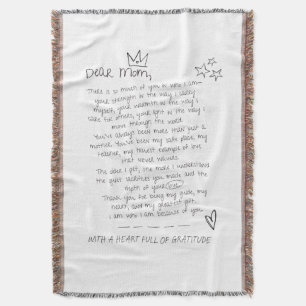 Dear Mom,
There is so much of you in who I am
your strength in the way I carry
myself, your warmth in the way I
care for others, your light in the way I
move through the world.
You've always been more than just a
mother. You've been my safe place, my
teacher, my truest example of love
that never wavers.
The older I get, the more I understand
the quiet sacrifices you made and the
depth of your love.
Thank you for being my guide, my
heart, and my greatest gift.
I am who I am because of you.
WITH A HEART FULL OF GRATITUDE